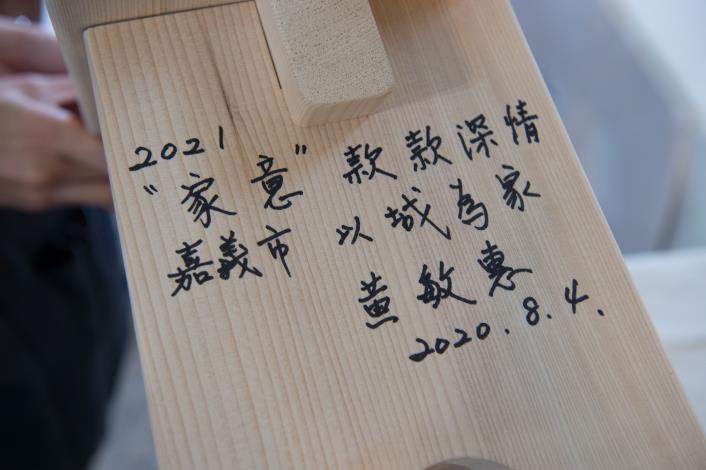 2021
"家意" 款款深情
嘉義市 以城為家
黃敏惠
2020.8.4.